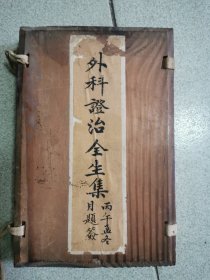 外科證治全生集
丙午孟冬
月題籤